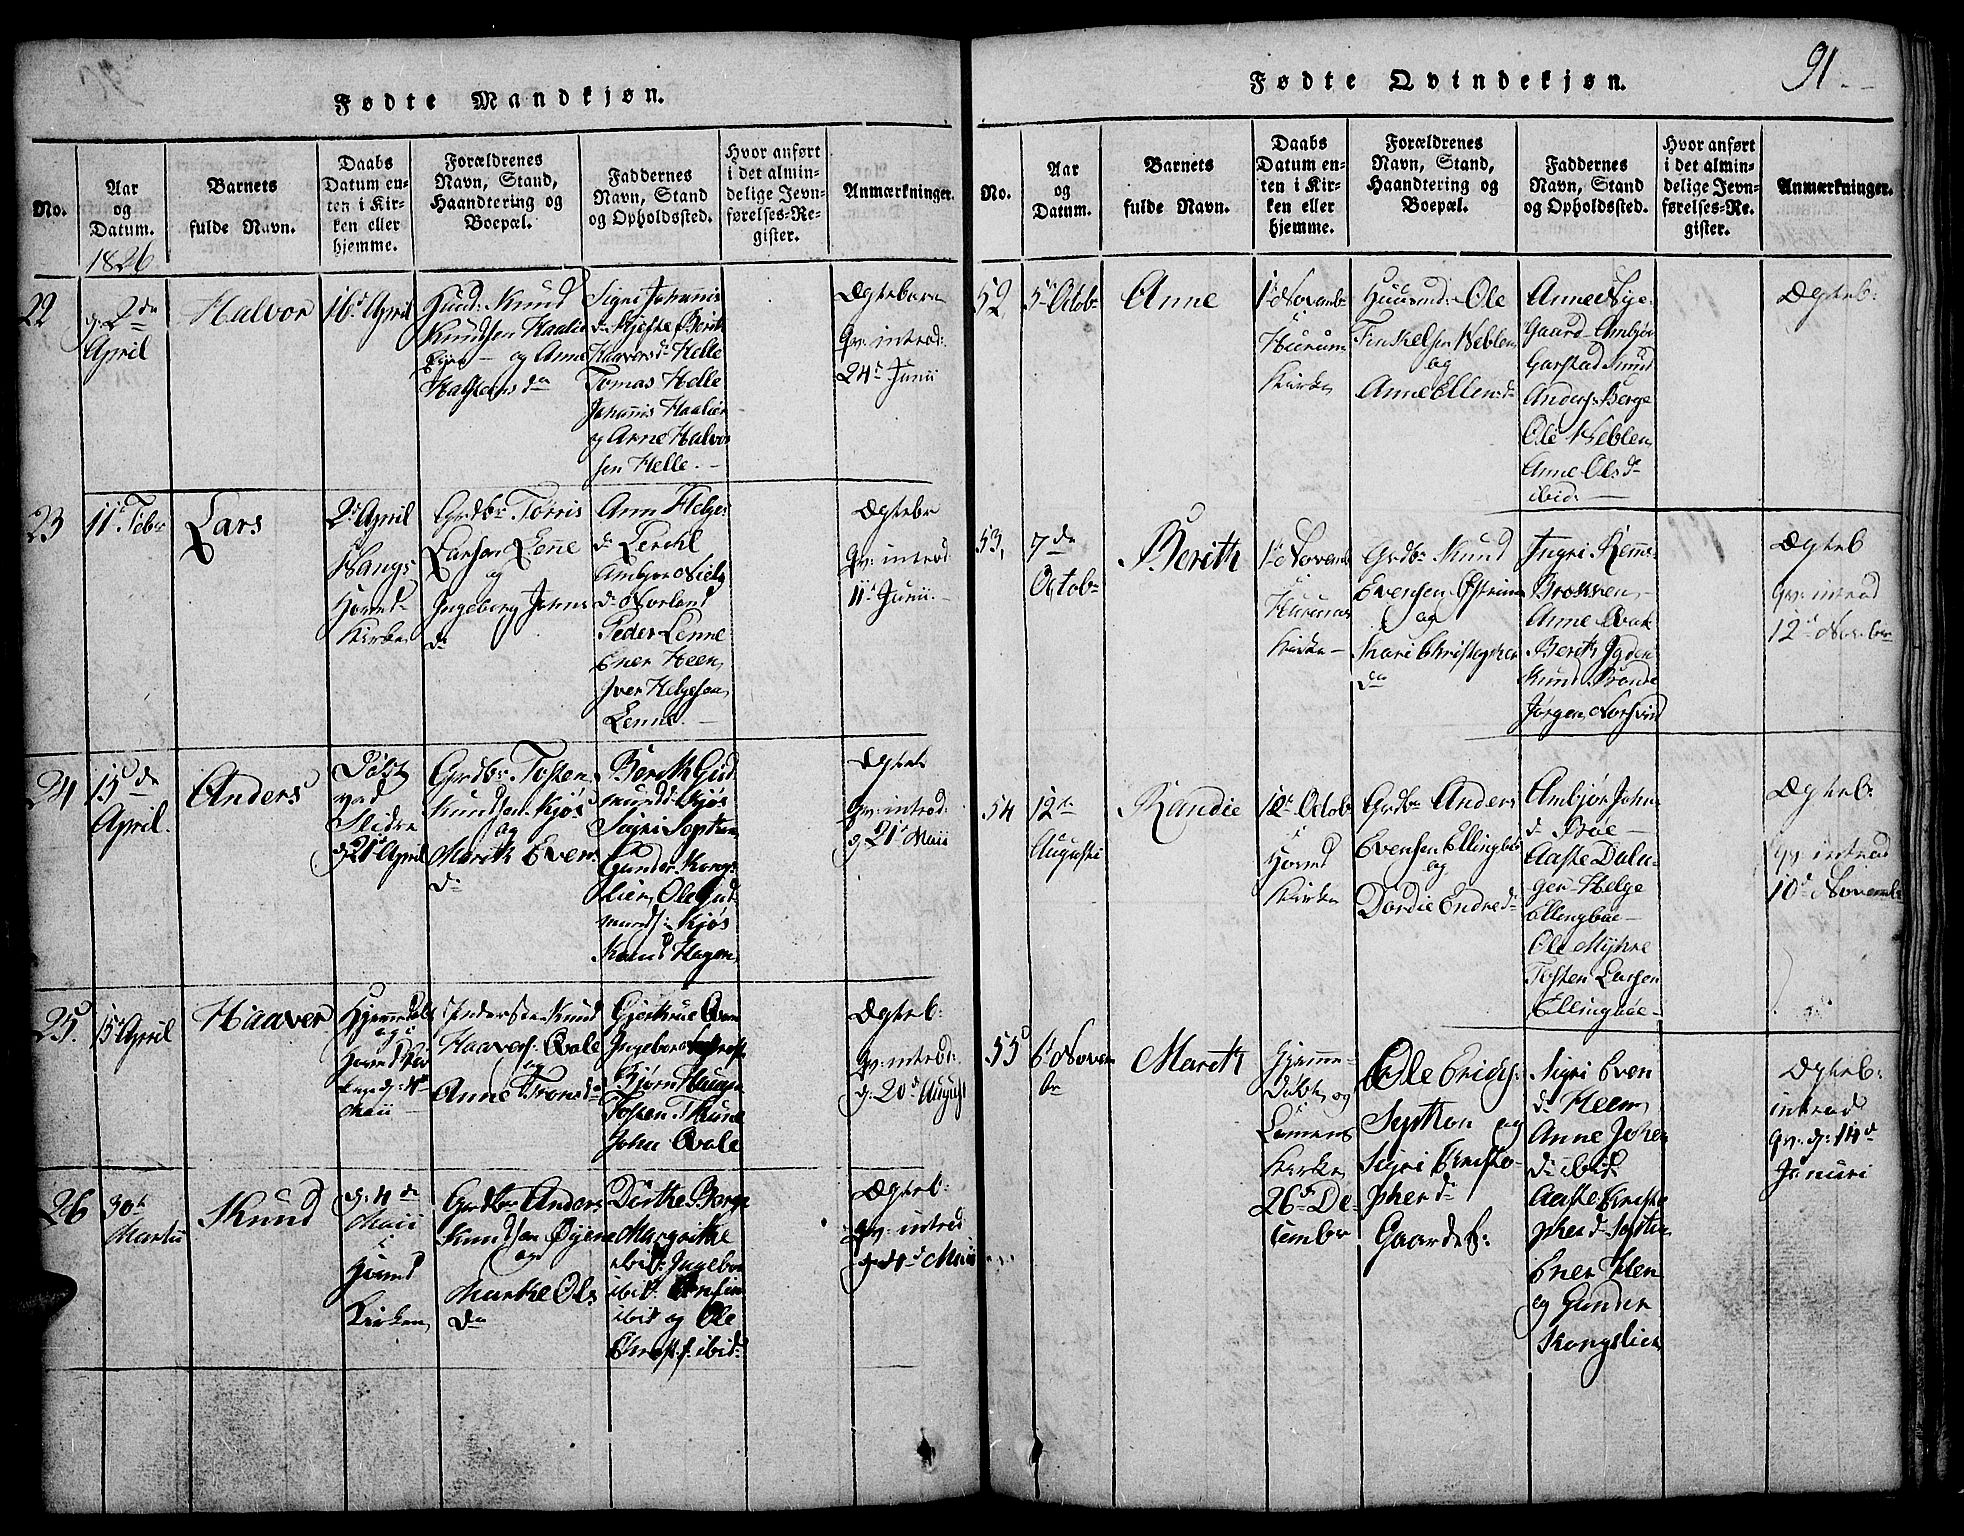 Fødte Mandkjøn.
No.
Aar
og
Datum.
1826
Barnets
fulde Navn.
Daabs
Datum en-
ten i Kir-
ken eller
hjemme.
Forældrenes
Navn, Stand,
Haandtering og
Boepæl.
Faddernes
Navn, Stand
og Opholdssted.
Hvor anført
i det almin-
delige Jevn-
førelses-Re-
gister.
Anmærkninger.
22
d: 2de
April
Halvor
16d April
Huusd: Knud
Knudsen Haalie
og Anne
Halstensda
Sigri Johannis
da Berith
Haavorsda Helle
Tomas Helle
Johannis Haalien
og Arne Halvor
sen Helle.
Ægteborn
Qv: introd:
24d Junii
23
11d Febr
Lars
2d April
Vangs
Hoved-
Kirke
Grdbr Torris
Larsen Lenne
og
Ingeborg Johns
da
Ann Helges
da
Ambjor Niels
da Norland
Peder Lenne
Ener Heen
Iver Helgesen
Lenne.
Ægtebr
Qv: introd:
11d Junii.
24
15de
April.
Anders
Døbt
ved
Slidre
d. 21d April
Grdbr Tosten
Knudsen Kjøs
og
Marith Evens
da
Berith Gud
mundsd: Kjøs
Sigri
Gunder Kongs
lien, Ole Gud
munds: Kjøs
Knud Hagen
Ægteb
Qv: introd:
d. 21d Maii
25.
15 April
Haaver
Hjemmedøbt
og i
Hoved Kir
ken d: 4de
Maii
Knud
Haavers: Qvale
og
Anne Tronsda
Gjertrue Qvam
Ingebor
Bjørn Hauge
Tosten Thune
John Qvale
Ægteb:
Qv: introd:
d: 20d August
26
30te
Martii
Knud
d: 4de
Maii
i
Hoved
Kirken
Grdbr Anders
Knudsen Øyene
og
Marthe Ols
da
Dorthe Berge
Margrethe
ibid: Ingebor
ibid:
ibid og Ole
ibid:
Ægteb:
Qv: introd
d: 4d Maii
91
Fødte Qvindekjøn.
No.
Aar
og
Datum.
Barnets
fulde Navn.
Daabs
Datum en-
ten i Kir-
ken eller
hjemme.
Forældrenes
Navn, Stand,
Haandtering og
Boepæl.
Faddernes
Navn, Stand
og Opholdssted.
Hvor anført
i det almin-
delige Jevn-
førelses-Re-
gister.
Anmærkninger.
52
5te Octob
Anne
1te Novemb
i
Hurum
Kirke
Huusmd: Ole
Tinkelsen Neblen
og
Anne Ellensda
Anne Nye-
Gaard Ambjør
Garstad Knud
Anders: Berge
Ole Neblen
Anne Olsda
ibid:
Ægteb:
53,
7de
Octobr
Berith
1te Novemb
i
Hurums
Kirke
Grdbr Knud
Evensen Østrim
og
Kari Christopher
da
Ingri
Brekken
Anne Qvak
Berith
Knud
Jørgen
Ægteb
Qv: introd
12d Novembr
54
12te
Augusti
Randie
12te Octob
i
Hoved
Kirke
Grdbr Anders
Evensen Ellingbøe
og
Dordie Endreda
Ambjør John
da Bøe
Aaste
Helge
Ellingbøe
Ole Myhre
Tosten Larsen
Ellingbøe
Ægteb:
Qv: introd
10d Novemb
55
6d Novem
br
Marith
Hjemme-
Døbt og
i Lomens
Kirke
26de De-
cember
Ole Erichs:
og
Sigri Christo-
pherda
Gaardbr:
Sigri Even
da Heen
Anne
da ibid:
Aaste Christo
pherd
Ener Heen
og Gunder
Kongslien
Ægteb:
introd
Qv: d: 14d
Januri